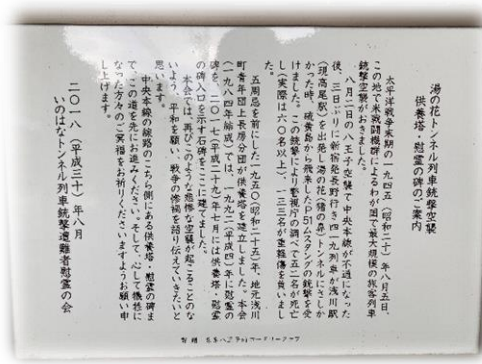 湯の花トンネル列車銃撃空襲
供養塔・慰霊の碑のご案内
太平洋戦争末期の一九四五（昭和二十）年八月五日、
この地で米戦闘機群によるわが国で最大規模の旅客列車
銃撃空襲がおきました。
八月二日の八王子空襲で中央本線が不通になった
後、三日ぶりに新宿発長野行き四一九列車が浅川駅
（現高尾駅）を出発し湯の花（猪の鼻）トンネルにさしか
かった時、硫黄島から飛来したP51ムスタングの銃撃を受
けました。この銃撃により警視庁の調べで五二名が死亡
し（実際は六〇名以上）、一三三名が重軽傷を負いまし
た。
五周忌を前にした一九五〇（昭和二十五）年、地元浅川
町青年団上長房分団が供養塔を建立しました。本会
（一九八四年結成）では、一九九二（平成四）年に慰霊の
碑を、二〇一七（平成二十九）年七月には供養塔・慰霊
の碑入口を示す石碑をここに建てました。
本会では、再びこのような悲惨な空襲が起こることのな
いよう、平和を願い、戦争の惨禍を語り伝えていきたいと
思います。
中央本線の線路のこちら側にある供養塔・慰霊の碑ま
で、この道を先にお進みください。そして、心して犠牲に
なった方々のご冥福をお祈りくださいますようお願い申
し上げます。
二〇一八（平成三十）年八月
いのはなトンネル列車銃撃遭難者慰霊の会